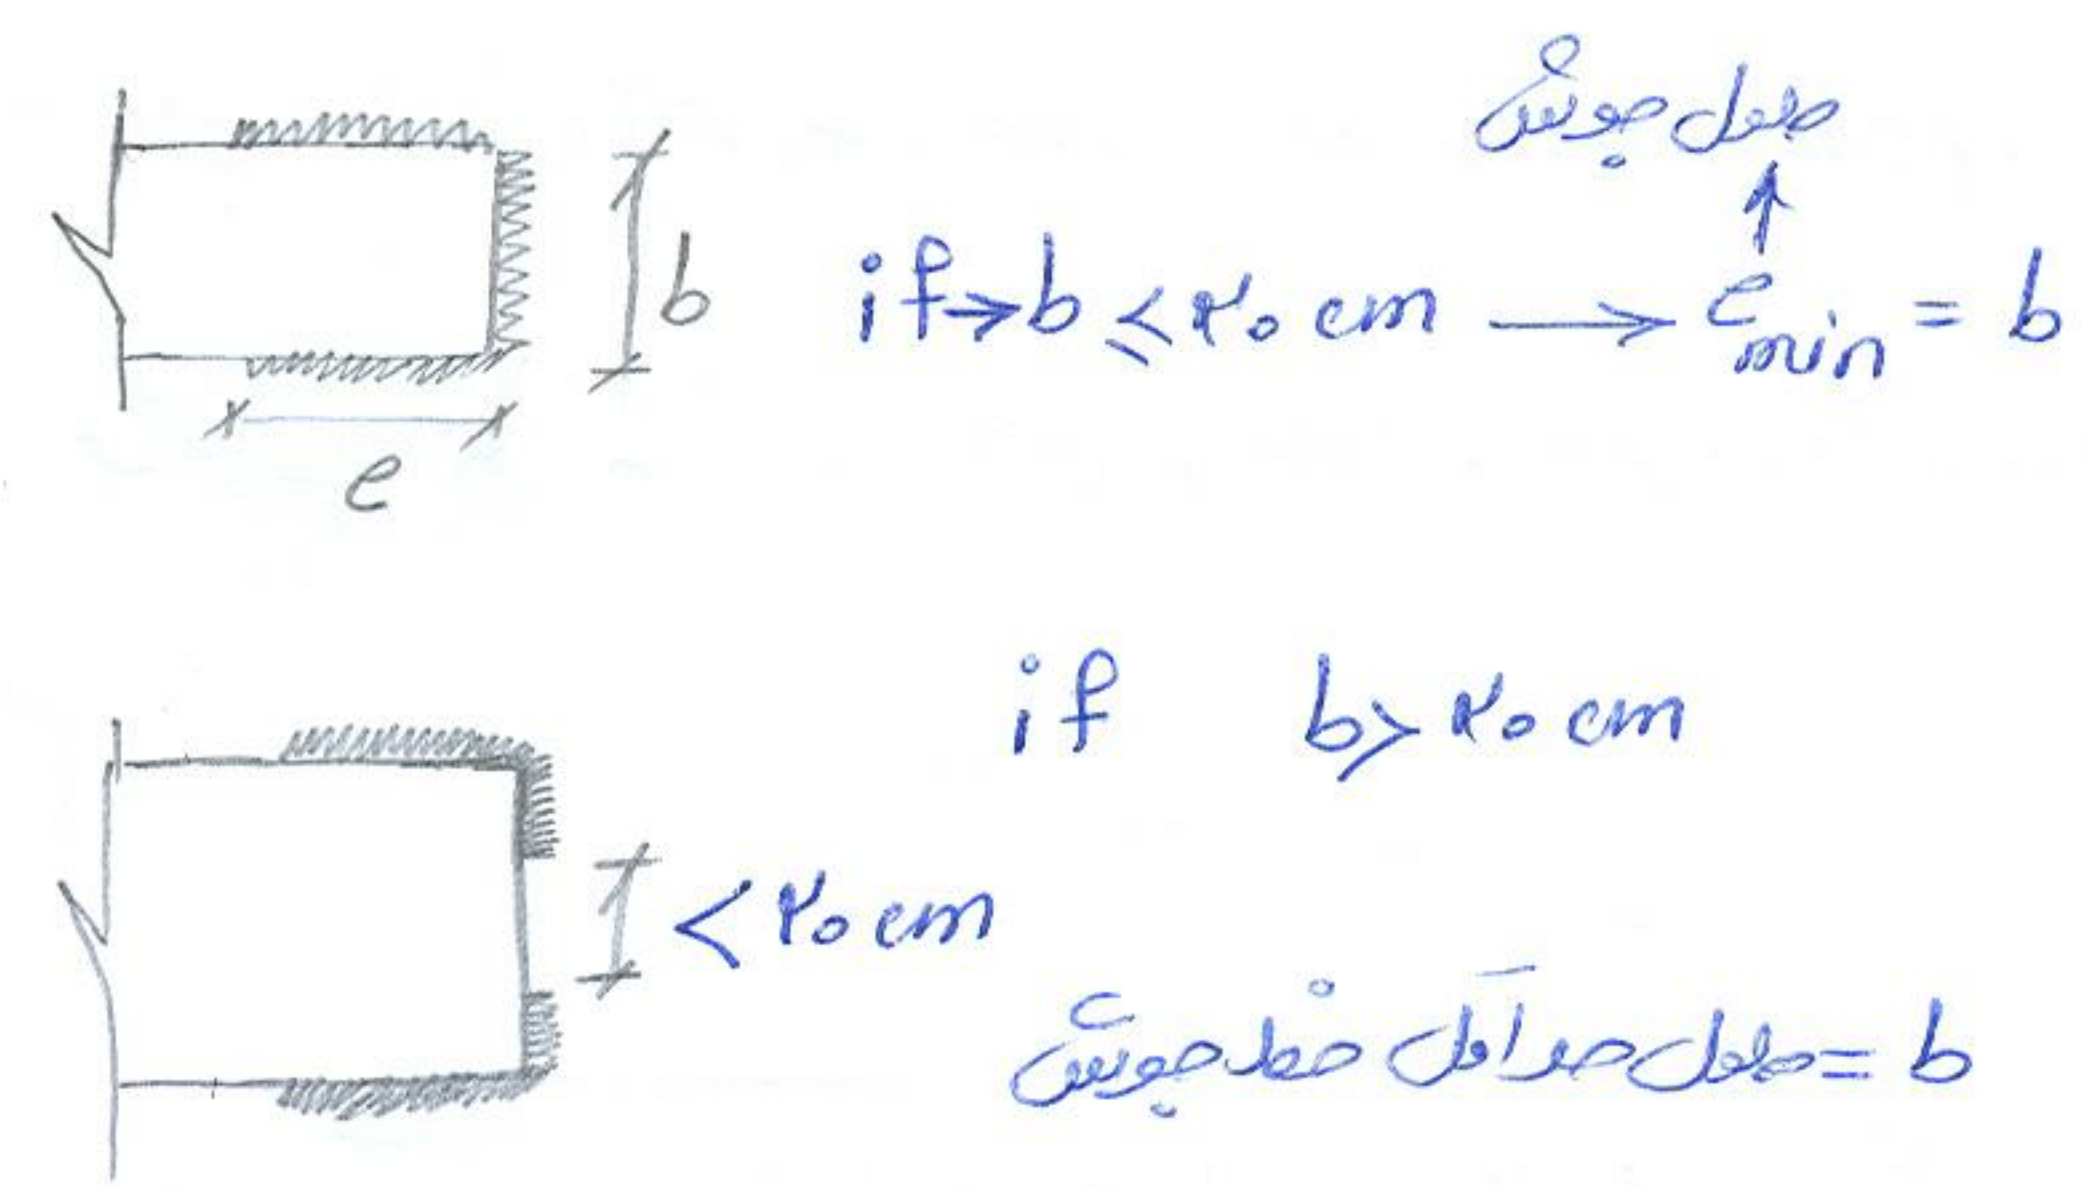 طول جوش
b
if → b ≤ ۲۰ cm → e min = b
e
if b > ۲۰ cm
< ۲۰ cm
طول حداقل خط جوش = b